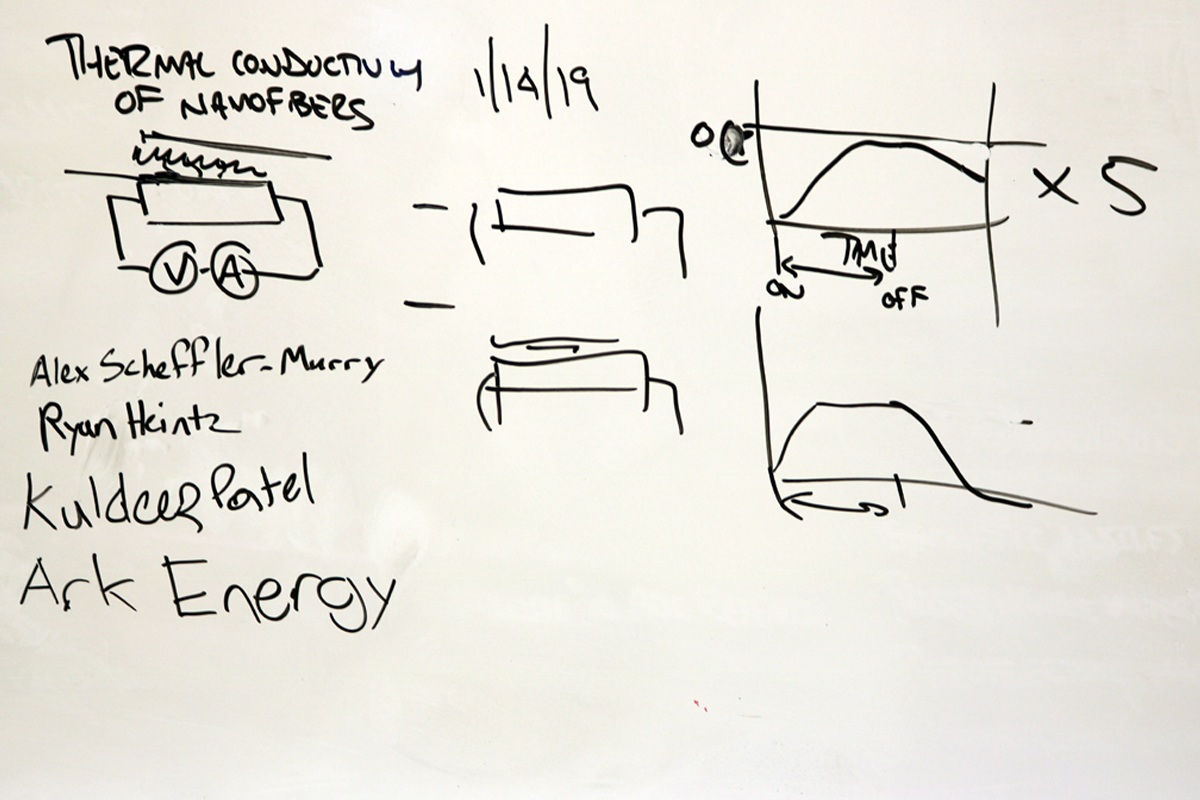 THERMAL CONDUCTIVITY
OF NANOFIBERS
1/14/19
V A
Alex Scheffler-Murry
Ryan Heintz
Kuldeep Patel
Ark Energy
0
x 5
TIME
ON
OFF